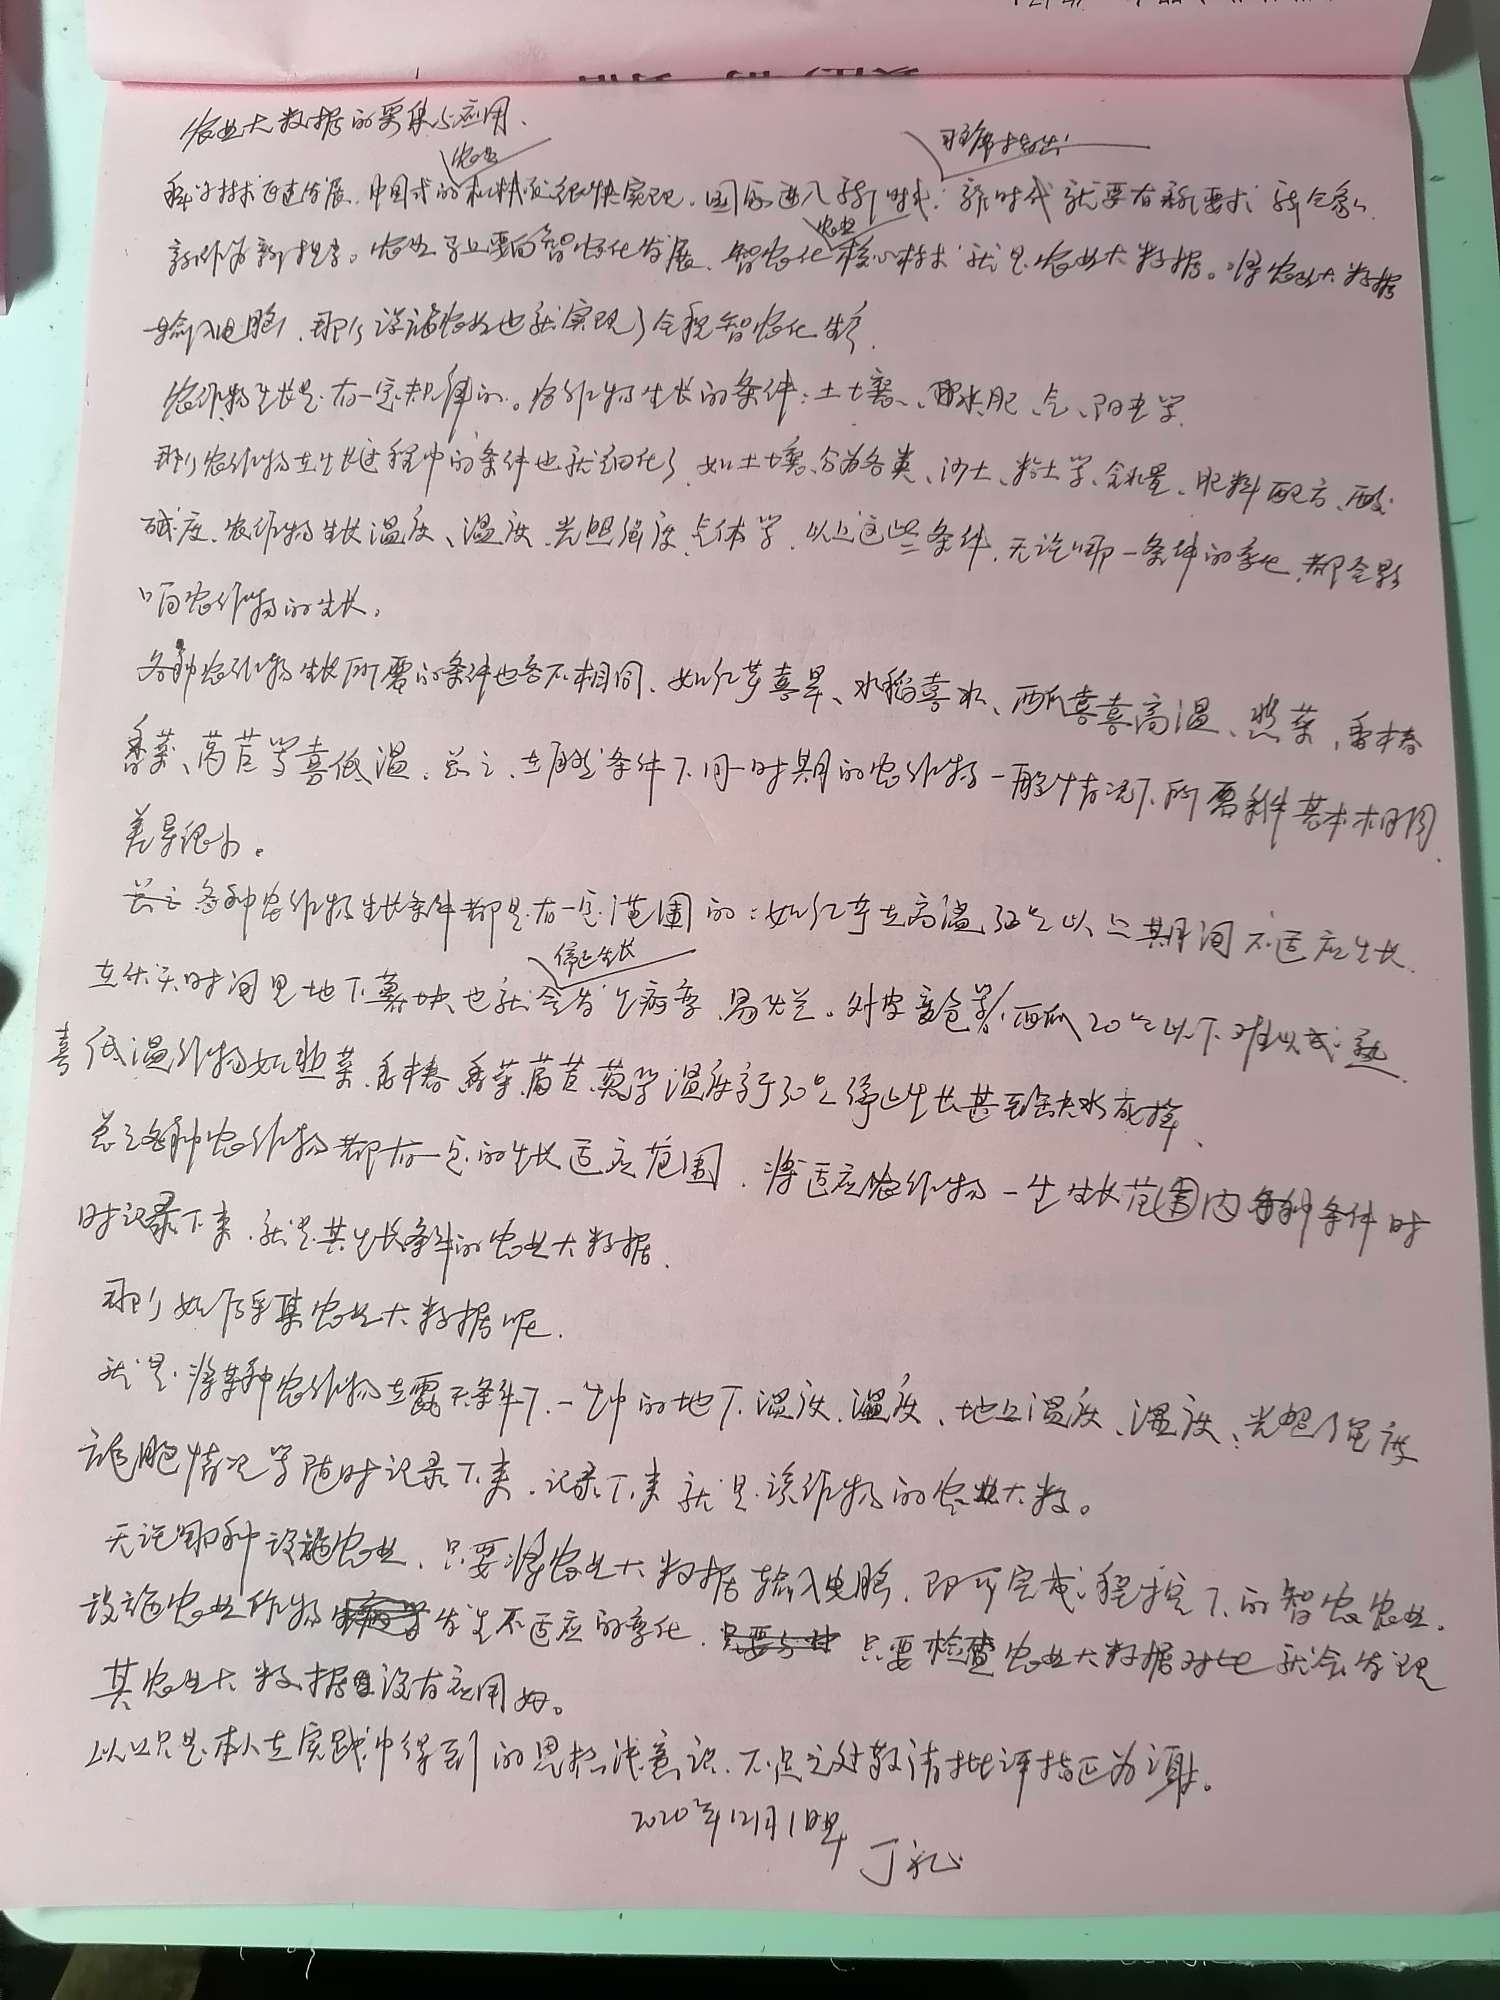 农业大数据的采集与应用.
科学技术迅速发展,中国式的农业机械化很快实现。国家进入新时代,习主席指出:新时代就要有新要求 新气象、
新作为新担当。农业要向智能化发展、智能化农业核心技术就是农业大数据。将农业大数据
输入电脑,那么设施农业也就实现了全程智能化生产.
农作物生长是有一定规律的。农作物生长的条件:土壤、水肥、气、阳光等
那么农作物在生长过程中的条件也就细化了,如土壤分为各类、沙土、粘土等、含水量、肥料配方、酸
碱度、农作物生长温度、湿度、光照强度、气体等,以上这些条件,无论哪一条件的变化,都会影
响农作物的生长。
各种农作物生长所需的条件也各不相同、如红芋喜旱、水稻喜水、西瓜喜喜高温、菜、香椿
香菜、莴苣等喜低温。总之、在自然条件下同一时期的农作物一般情况下所需条件基本相同
差异很小。
总之各种农作物生长条件都是有一定范围的:如红芋在高温 以上期间不适应生长
在伏天时间里地下薯块也就会停止生长发生病变、易烂。西瓜20℃以下难以成熟
喜低温作物如菜、香椿香菜、莴苣、等温度高于30℃停止生长甚至缺水死掉、
总之各种农作物都有一定的生长适应范围,将适应农作物一生生长范围内各种条件时
时记录下来,就是其生长条件的农业大数据.
那么如何采集农业大数据呢.
就是将某种农作物在露天条件下、一生中的地下温度、湿度、地上温度、湿度、光照强度
施肥情况等随时记录下来、记录下来就是该作物的农业大数。
无论哪种设施农业、只要将农业大数据输入电脑,即可完成程控下的智能农业.
设施农业作物发生不适应的变化,只要检查农业大数据对比就会发现
其农业大数据没有应用好。
以上只是本人在实践中得到的思想意识,不足之处敬请批评指正为谢。
2020年12月1日早
丁